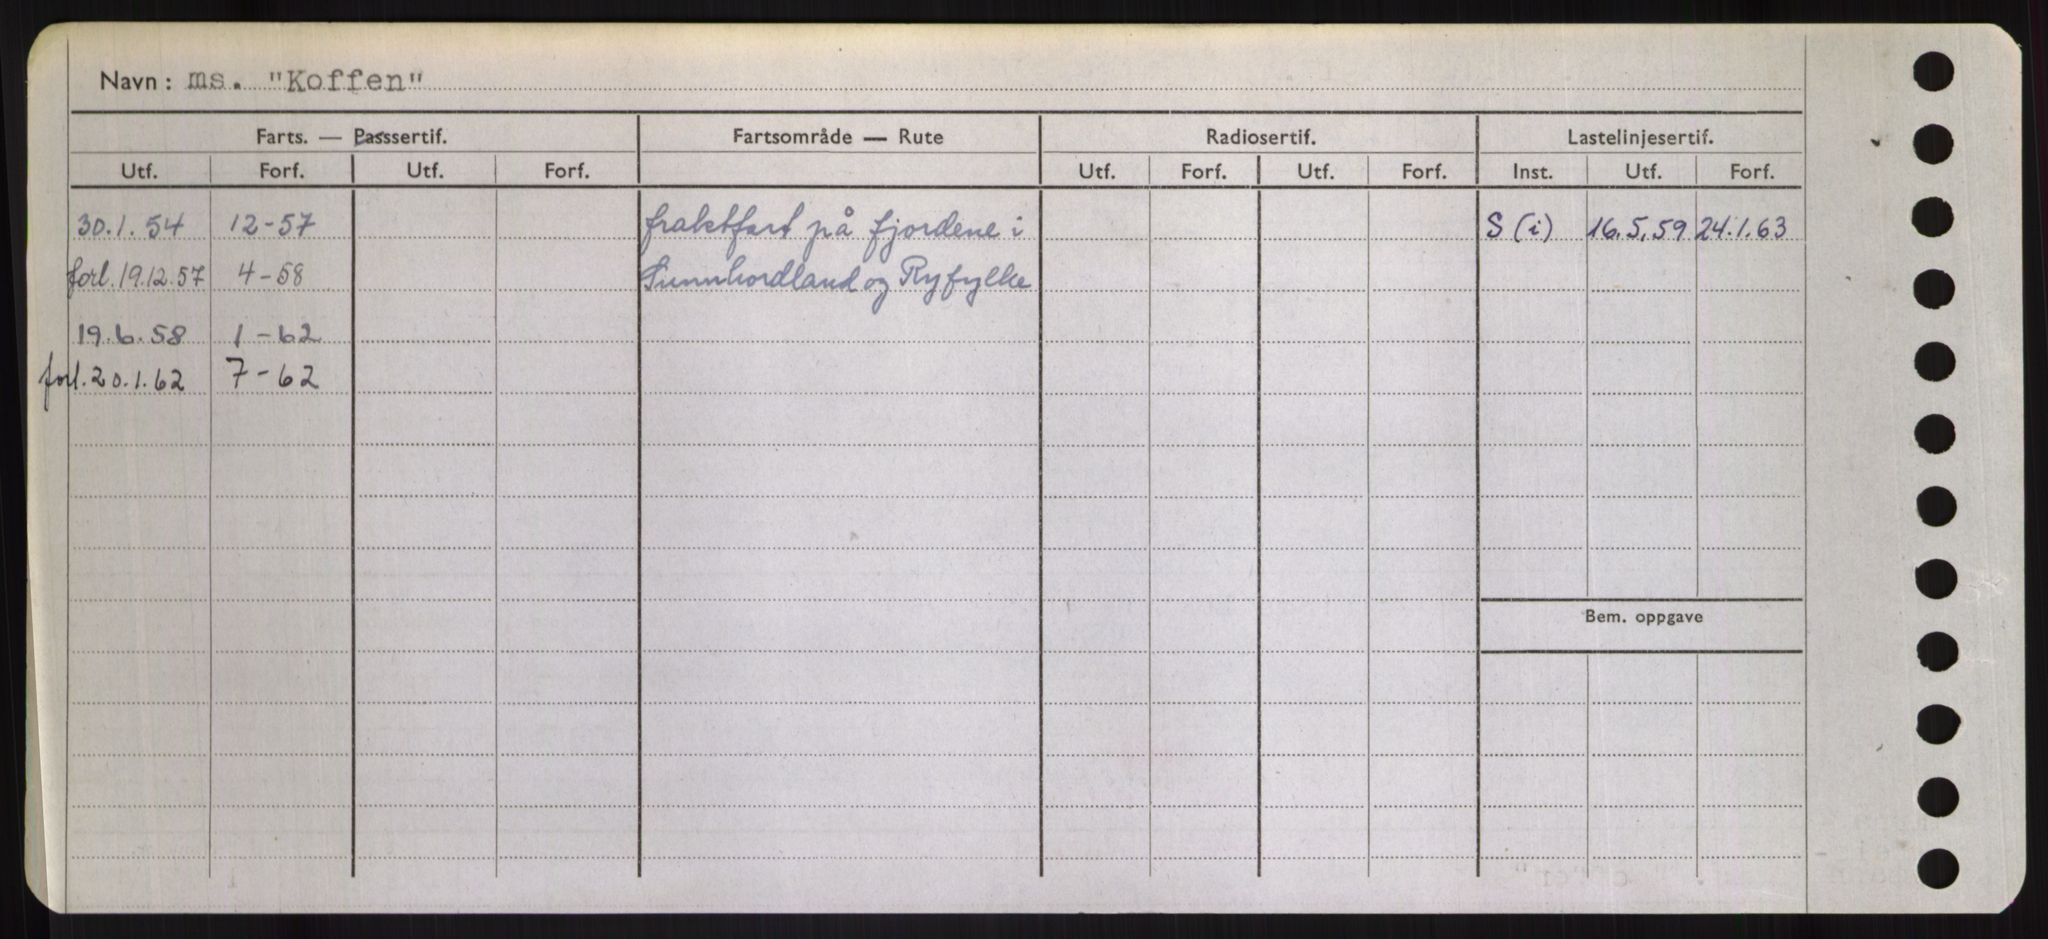 Navn: ms. "Koffen"
Farts. — Passsertif. Fartsområde — Rute Radiosertif. Lastelinjesertif.
Utf. Forf. Utf. Forf. Utf. Forf. Utf. Forf. Inst. Utf. Forf.
30.1.54 12-57 fraktfart på fjordene i S (i) 16.5.59 24.1.63
forl. 19.12.57 4-58 Sunnhordland og Ryfylke
19.6.58 1-62
forl. 20.1.62 7-62
Bem. oppgave